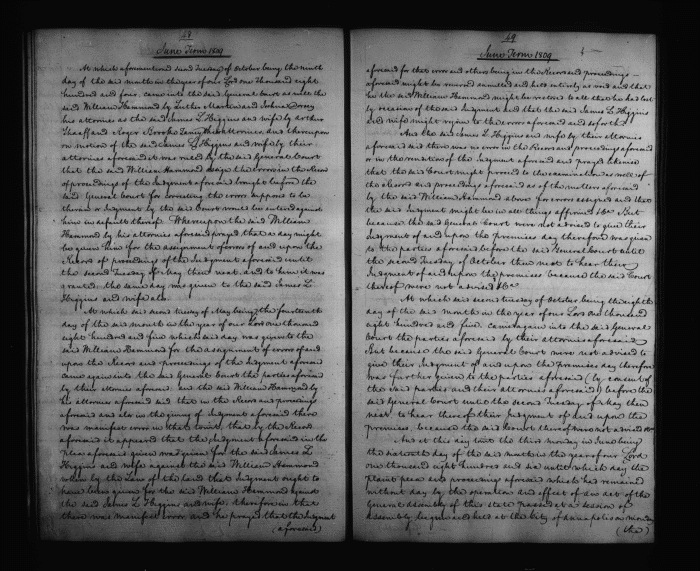 48
June Term 1809
At which aforementioned second Tuesday of October being the ninth
day of the said month in the year of our Lord one thousand eight
hundred and four, came into the said General Court as well the
said William Hammond by Luther Martin and Johnza
his attornies as the said James L Higgins and wife by Arthur
Shaaff and Roger Brooke Taney their attornies, and thereupon
on motion of the said James L Higgins and wife by their
attornies aforesaid it was ruled by the said General Court
that the said William Hammond assign the errors in the Record
of proceedings of the Judgment aforesaid brought before the
said General Court for correcting the errors suppose to be
therein or Judgment by the said Court would be entered against
him in default thereof. Whereupon the said William
Hammond by his attornies aforesaid prayed that a day might
be given him for the assignment of errors of and upon the
Record of proceedings of the Judgment aforesaid until
the second Tuesday of May then next, and to him it was
granted. the same day was given to the said James L.
Higgins and wife also.
At which said second tuesday of May being the fourteenth
day of the said month in the year of our Lord one thousand
eight hundred and five which said day was given to the
said William Hammond for the assignment of errors of and
upon the Record and proceedings of the Judgment aforesaid
came again into the said General Court the parties aforesaid
by their attornies aforesaid. and the said William Hammond by
his attornies aforesaid said that in the Record and proceedings
aforesaid and also in the giving of Judgment aforesaid there
was manifest error in that to wit, that by the Record
aforesaid it appeared that the Judgment aforesaid in the
plea aforesaid given was given for the said James L
Higgins and wife against the said William Hammond
when by the Law of the land that Judgment ought to
have been given for the said William Hammond against
the said James L Higgins and wife, therefore in that
there was manifest error and he prayed that the Judgment
(aforesaid)
49
June Term 1809
aforesaid for that error and others being in the Record and proceedings
aforesaid might be reversed annulled and held entirely as void and that
he the said William Hammond might be restored to all that he had lost
by occasion of the said Judgment and that the said James L Higgins
and wife might rejoin to the errors aforesaid and so forth.
And the said James L Higgins and wife by their attornies
aforesaid said there was no error in the Record and proceedings aforesaid
or in the rendition of the Judgment aforesaid and prayed likewise
that the said Court might proceed to the examination as well of
the Record and proceedings aforesaid as of the matters aforesaid
by the said William Hammond above for errors assigned and that
the said Judgment might be in all things affirmed &c. But
because the said General Court were not advised to give their
Judgment of and upon the premises day therefore was given
to the parties aforesaid before the said General Court until
the second Tuesday of October then next to hear their
Judgment of and upon the premises because the said Court
thereof were not advised &c.
At which said second tuesday of October being the eighth
day of the said month in the year of our Lord one thousand
eight hundred and five. came again into the said General
Court the parties aforesaid by their attornies aforesaid
But because the said General Court were not advised to
give their Judgment of and upon the premises day therefore
was further given to the parties aforesaid (by consent of
the said parties and their attornies aforesaid) before the
said General Court until the second Tuesday of May then
next to hear thereof their Judgment of and upon the
premises. because the said Court thereof were not advised &c.
And at this day to wit the third monday in June being
the sixteenth day of the said month in the year of our Lord
one thousand eight hundred and six until which day the
plaint plea and proceedings aforesaid which had remained
without day by the operation and effect of an act of the
General Assembly of this state passed at a session of
assembly begun and held at the City of Annapolis on monday
(the)